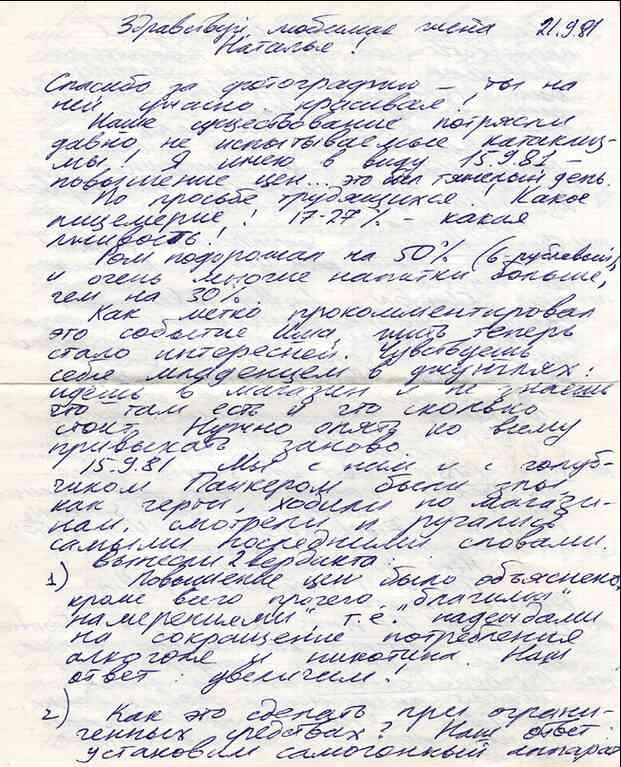 Здравствуй, любимая чиста 21.9.81
Наталья!
Спасибо за фотографию – ты на
ней ужасно красивая!
Наше существование потрясли
давно не испытываемые катаклиз-
мы! Я имею в виду 15.9.81 –
повышение цен... это был тяжёлый день.
По просьбе трудящихся! Какое
лицемерие! 17-27% – какая
лживость!
Ром подорожал на 50% (6-рублевый),
и очень многие напитки больше,
чем на 30%.
Как метко прокомментировал
это событие Има, жить теперь
стало интересней. Чувствуешь
себя младенцем в джунглях:
идешь в магазин и не знаешь
что там есть и что сколько
стоит. Нужно опять ко всему
привыкать заново.
15.9.81 Мы с ним и с голуб-
чиком Панкером были злы
как черти, ходили по магази-
нам, смотрели и ругались
самыми последними словами.
Вынесли 2 вердикта:
1) Повышение цен было объяснено,
кроме всего прочего, „благими
намерениями", т.е. надеждами
на сокращение потребления
алкоголя и никотина. Наш
ответ: увеличим!
2) Как это сделать при ограни-
ченных средствах? Наш ответ:
установим самогонный аппарат